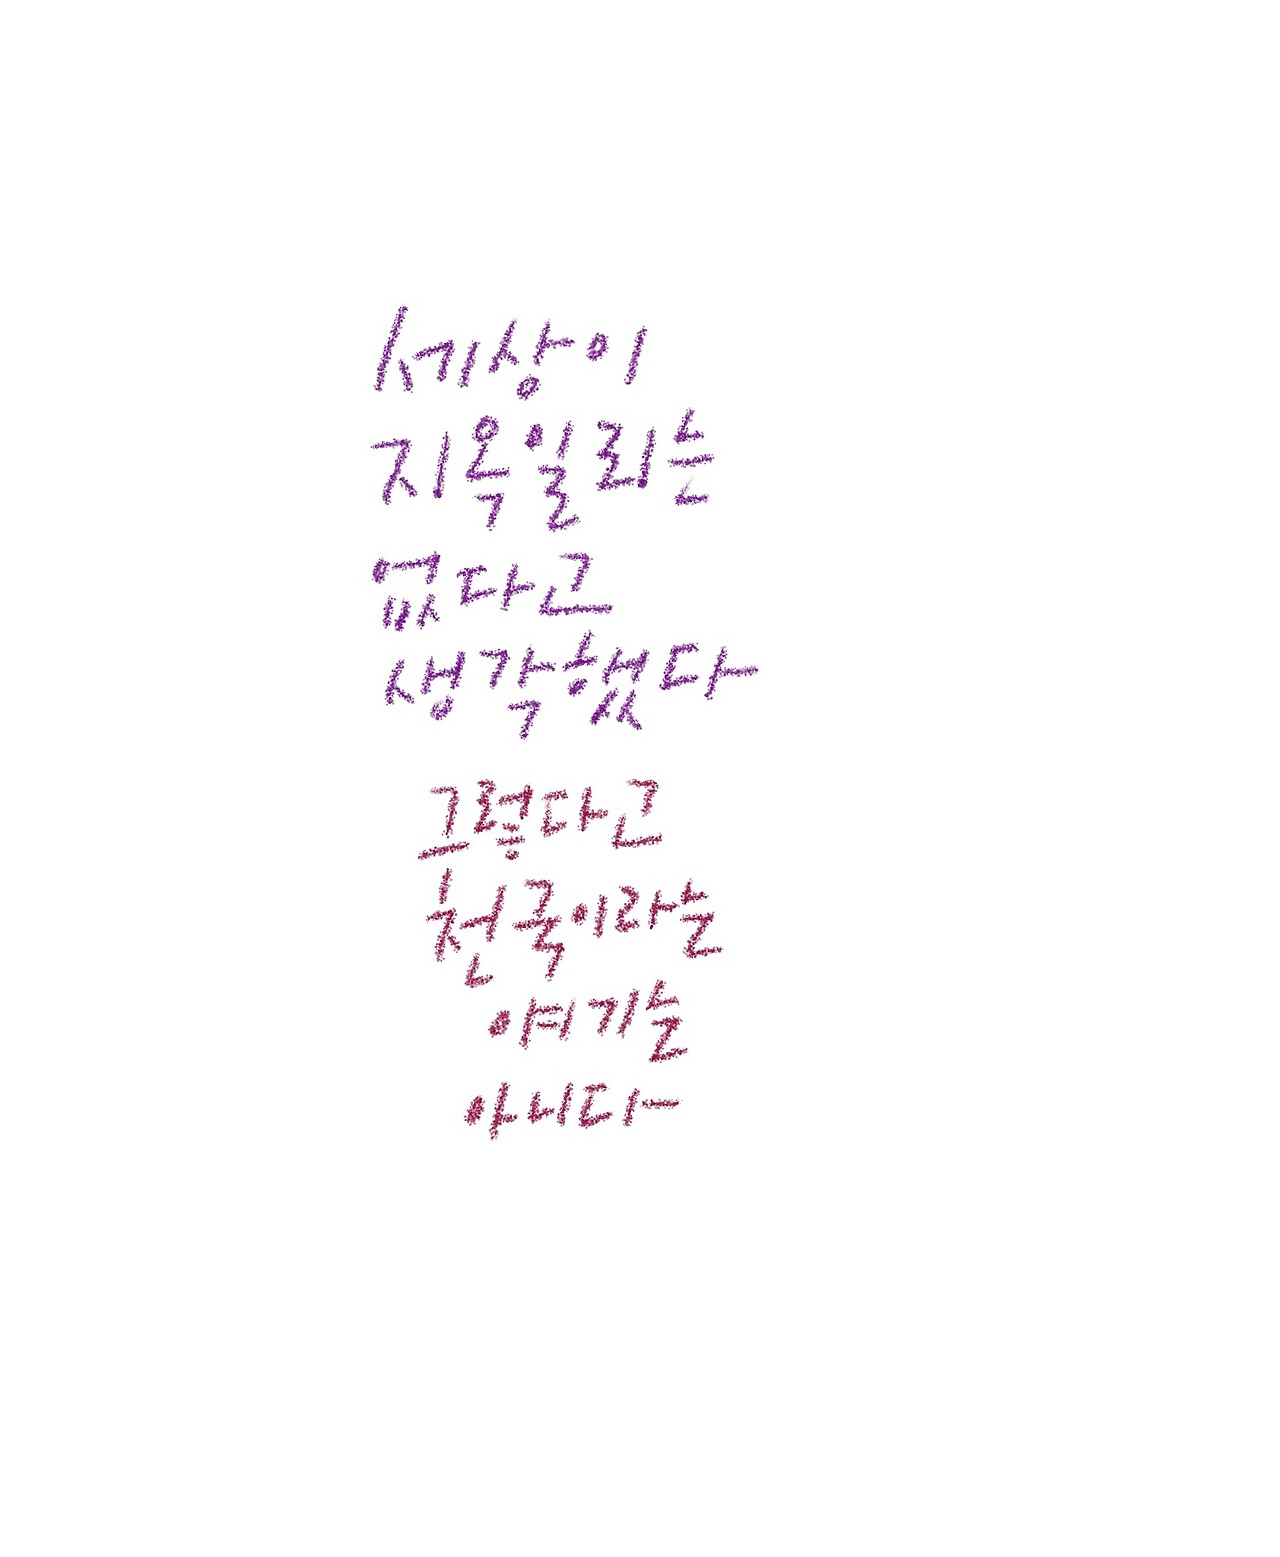 세상이
지옥일리는
없다고
생각했다
그렇다고
천국이라는
얘기는
아니다